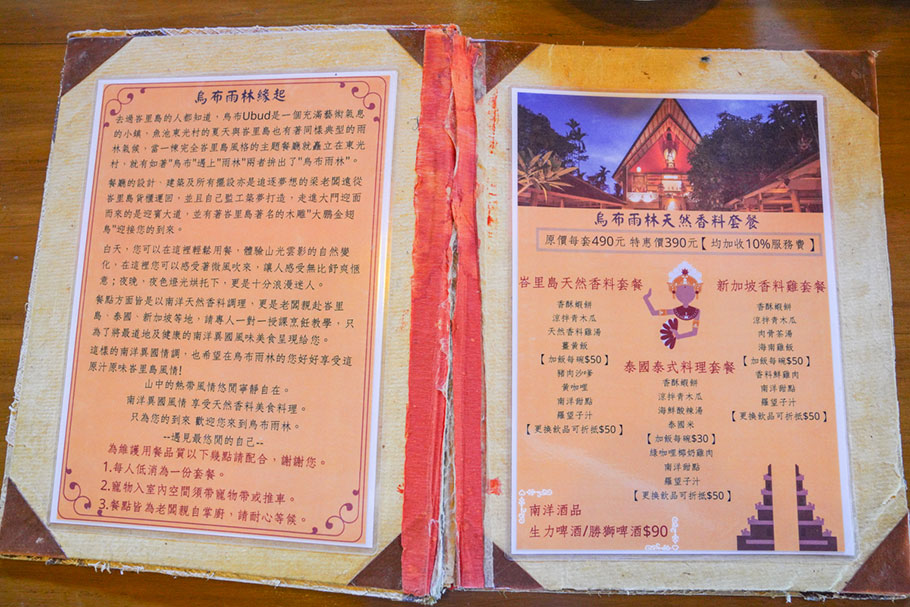 烏布雨林緣起
去過峇里島的人都知道，烏布Ubud是一個充滿藝術氣息
的小鎮，魚池東光村的夏天與峇里島也有著同樣典型的雨
林氣候，當一棟完全峇里島風格的主題餐廳就矗立在東光
村，就有如著"烏布"遇上"雨林"兩者拚出了"烏布雨林"。
餐廳的設計，建築及所有擺設亦是追逐夢想的梁老闆遠從
峇里島貨櫃運回，並且自己監工築夢打造，走進大門迎面
而來的是迎賓大道，並有著峇里島著名的木雕"大鵬金翅
鳥"迎接您的到來。
白天，您可以在這裡輕鬆用餐，體驗山光雲影的自然變
化，在這裡您可以感受著微風吹來，讓人感受無比舒爽愜
意；夜晚，夜色燈光烘托下，更是十分浪漫迷人。
餐點方面皆是以南洋天然香料調理，更是老闆親赴峇里
島、泰國、新加坡等地，請專人一對一授課烹飪教學，只
為了將最道地及健康的南洋異國風味美食呈現給您。
這樣的南洋異國情調，也希望在烏布雨林的您好好享受這
原汁原味峇里島風情!
山中的熱帶風情悠閒寧靜自在。
南洋異國風情 享受天然香料美食料理。
只為您的到來 歡迎您來到烏布雨林。
--遇見最悠閒的自己--
為維護用餐品質以下幾點請配合，謝謝您。
1.每人低消為一份套餐。
2.寵物入室內空間須帶寵物帶或推車。
3.餐點皆為老闆親自掌廚，請耐心等候。
烏布雨林天然香料套餐
原價每套490元 特惠價390元【 均加收10%服務費 】
峇里島天然香料套餐
香酥蝦餅
涼拌青木瓜
天然香料雞湯
薑黃飯
【 加飯每碗$50 】
豬肉沙嗲
黃咖哩
南洋甜點
羅望子汁
【 更換飲品可折抵$50 】
泰國泰式料理套餐
香酥蝦餅
涼拌青木瓜
海鮮酸辣湯
泰國米
【 加飯每碗$30 】
綠咖哩椰奶雞肉
南洋甜點
羅望子汁
【 更換飲品可折抵$50 】
新加坡香料雞套餐
香酥蝦餅
涼拌青木瓜
肉骨茶湯
海南雞飯
【 加飯每碗$50 】
香料鮮雞肉
南洋甜點
羅望子汁
【 更換飲品可折抵$50 】
南洋酒品
生力啤酒/勝獅啤酒$90